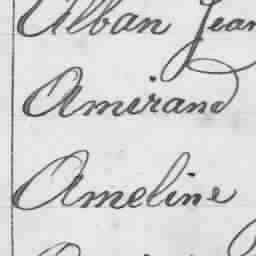 Alban Jean
Amirand
Ameline